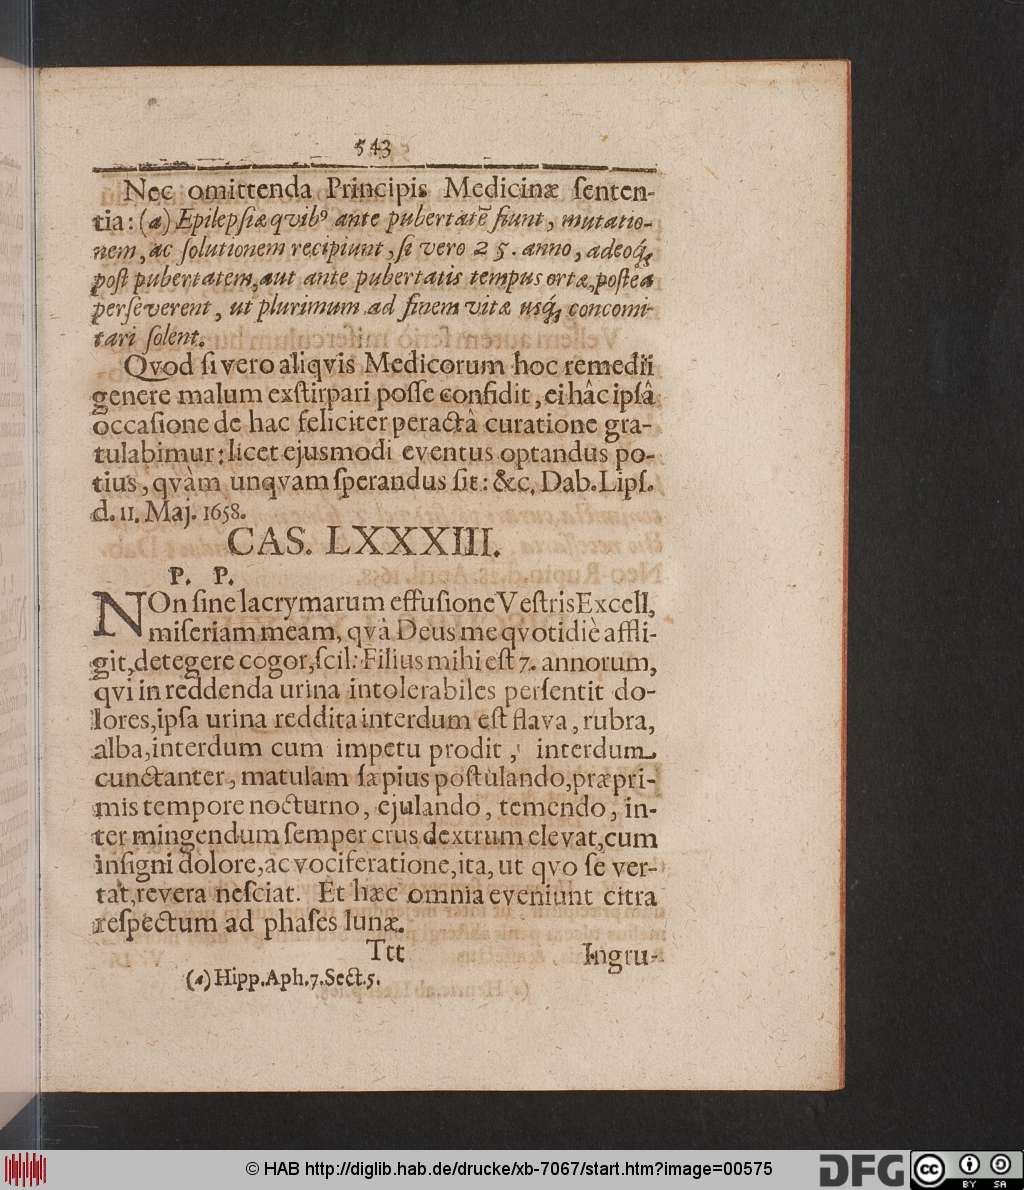 543
Nec omittenda Principis Medicinæ ſenten-
tia: (a) Epilepſiæ qvibꝰ ante pubertatē fiunt, mutatio-
nem, ac ſolutionem recipiunt, ſi vero 25. anno, adeoq́;
poſt pubertatem, aut ante pubertatis tempus ortæ, poſtea
perſeverent, ut plurimum ad finem vitæ usq́; concomi-
tari ſolent.
Qvod ſi vero aliqvis Medicorum hoc remedii
genere malum exſtirpari poſſe confidit, ei hâc ipſâ
occaſione de hac feliciter peractâ curatione gra-
tulabimur: licet ejusmodi eventus optandus po-
tius, qvàm unqvam ſperandus ſit: &c. Dab. Lipſ.
d. 11. Maj. 1658.
CAS. LXXXIII.
P. P.
NOn ſine lacrymarum effuſione Veſtris Excell,
miſeriam meam, qvâ Deus me qvotidiè affli-
git, detegere cogor, ſcil: Filius mihi eſt 7. annorum,
qvi in reddenda urina intolerabiles perſentit do-
lores, ipſa urina reddita interdum eſt flava, rubra,
alba, interdum cum impetu prodit, interdum
cunctanter, matulam ſæpius poſtulando, præpri-
mis tempore nocturno, ejulando, temendo, in-
ter mingendum ſemper crus dextrum elevat, cum
inſigni dolore, ac vociferatione, ita, ut qvo ſe ver-
tat, revera neſciat. Et hæc omnia eveniunt citra
reſpectum ad phaſes lunæ.
Ttt Ingru-
(a) Hipp. Aph. 7. Sect. 5.
© HAB http://diglib.hab.de/drucke/xb-7067/start.htm?image=00575
DFG cc BY SA